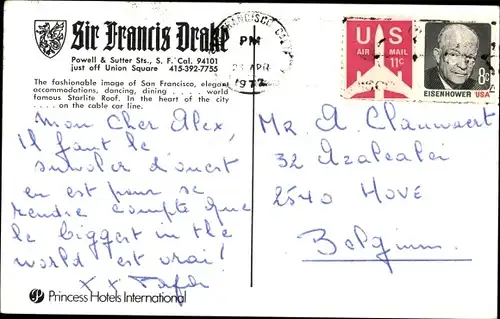 Sir Francis Drake
Powell & Sutter Sts., S. F. Cal. 94101
just off Union Square 415-392-7755
The fashionable image of San Francisco, elegant
accommodations, dancing, dining . . . . . world
famous Starlite Roof. In the heart of the city
. . . . on the cable car line.
FRANCISCO
PM
APR
1972
U S
AIR MAIL
11¢
8¢
EISENHOWER USA
Mon Cher Alex,
Il faut le
survoler d'ouest
en est pour se
rendre compte que
le biggest in the
world est vrai!
x x
Mr A. Clauwaert
32 Azalealei
2540 HOVE
Belgium.
Princess Hotels International